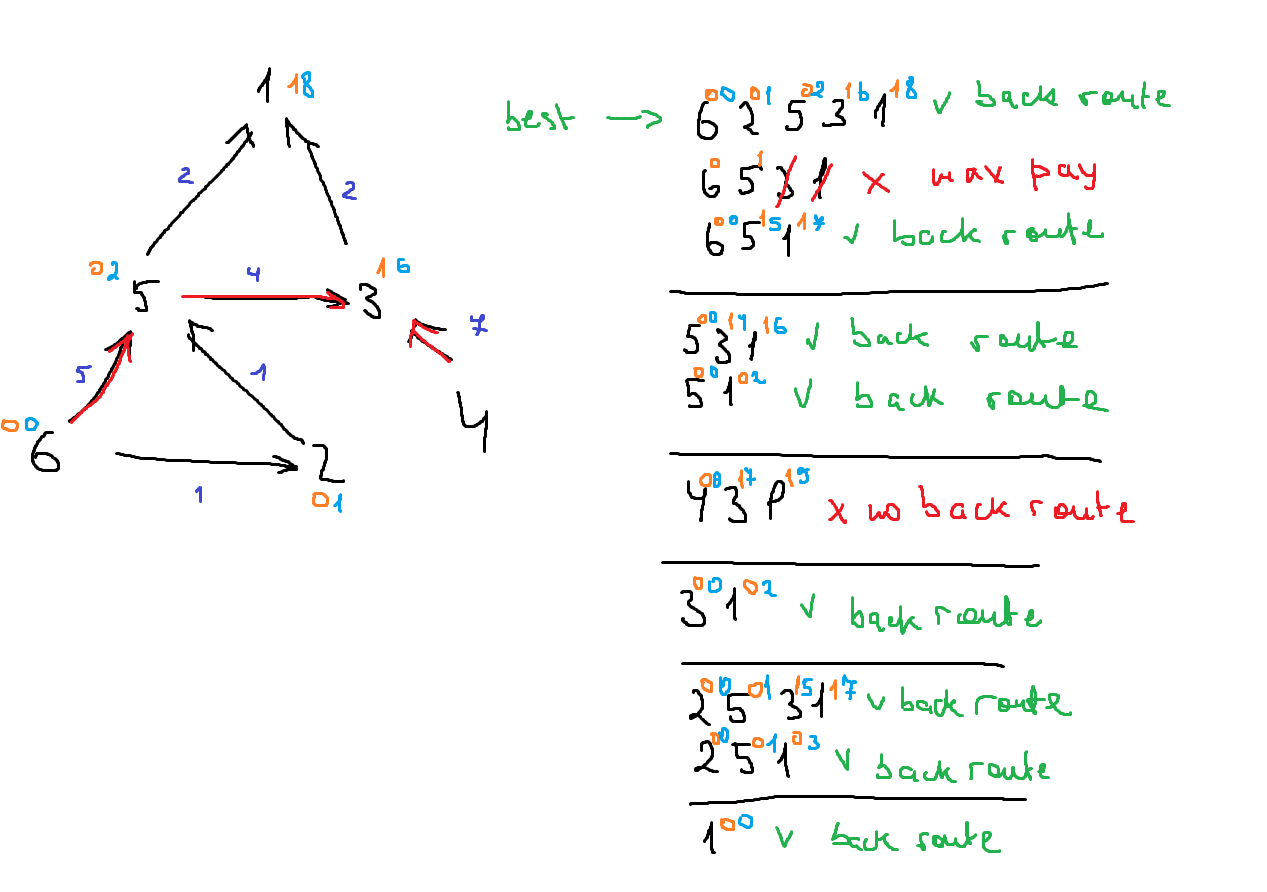 1 18
2
2
02
5
4
3 16
7
5
1
00
6
1
2
01
4
best → 6 00 2 01 5 02 3 16 1 18 v back route
6 0 5 1 3 1 x max pay
6 00 5 15 1 17 v back route
5 00 3 14 1 16 v back route
5 00 1 02 v back route
4 00 3 17 1 19 x no back route
3 00 1 02 v back route
2 00 5 01 3 15 1 17 v back route
2 00 5 01 1 03 v back route
1 00 v back route